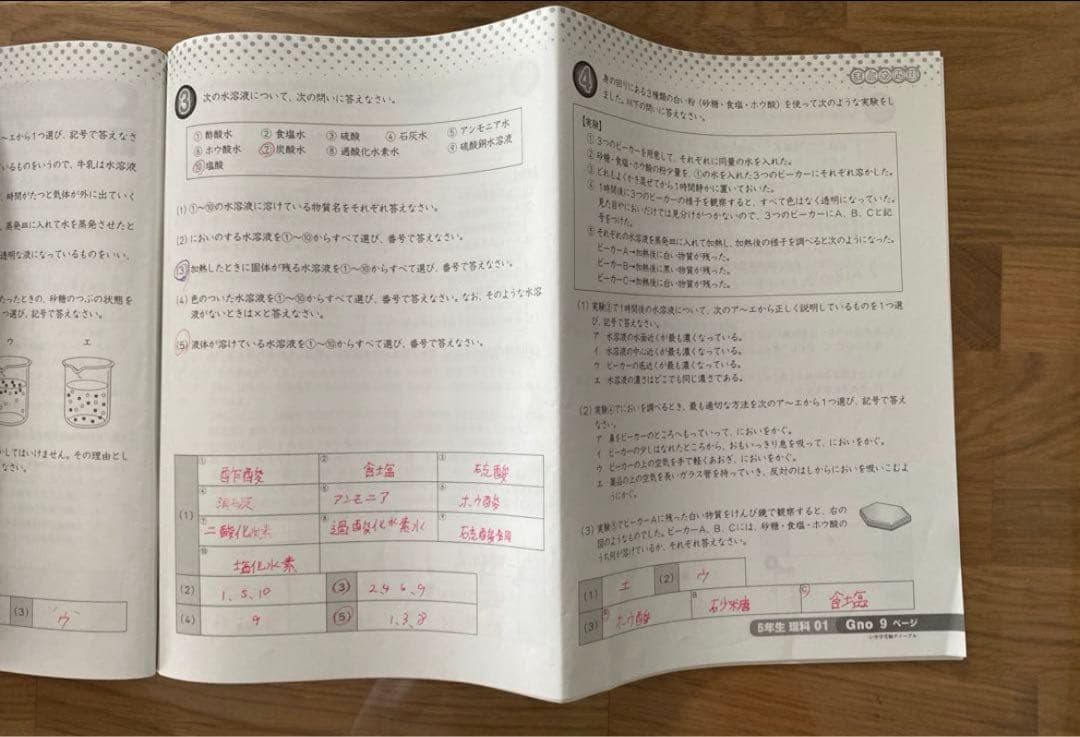 ア〜エから1つ選び、記号で答えなさ
いるものをいうので、牛乳は水溶液
、時間がたつと気体が外に出ていく
、蒸発皿に入れて水を蒸発させたと
透明な液になっているものをいい、
たったときの、砂糖のつぶの状態を
つ選び、記号で答えなさい。
ウ エ
してはいけません。その理由とし
なさい。
(3) ウ
3 次の水溶液について、次の問いに答えなさい。
① 酢酸水 ② 食塩水 ③ 硫酸 ④ 石灰水 ⑤ アンモニア水
⑥ ホウ酸水 ⑦ 炭酸水 ⑧ 過酸化水素水 ⑨ 硫酸銅水溶液
⑩ 塩酸
(1) ①〜⑩の水溶液に溶けている物質名をそれぞれ答えなさい。
(2) においのする水溶液を①〜⑩からすべて選び、番号で答えなさい。
(3) 加熱したときに固体が残る水溶液を①〜⑩からすべて選び、番号で答えなさい。
(4) 色のついた水溶液を①〜⑩からすべて選び、番号で答えなさい。なお、そのような水溶
液がないときは×と答えなさい。
(5) 液体が溶けている水溶液を①〜⑩からすべて選び、番号で答えなさい。
(1) ① 酢酸 ② 食塩 ③ 硫酸
④ ⑤ アンモニア ⑥ ホウ酸
⑦ 二酸化炭素 ⑧ 過酸化水素水 ⑨ 硫酸銅
⑩ 塩化水素
(2) 1、5、10 (3) 2、4、6、9
(4) 9 (5) 1、3、8
4 身の回りにある3種類の白い粉（砂糖・食塩・ホウ酸）を使って次のような実験をし
ました。以下の問いに答えなさい。
【実験】
① 3つのビーカーを用意して、それぞれに同量の水を入れた。
② 砂糖・食塩・ホウ酸の粉少量を、①の水を入れた3つのビーカーにそれぞれ溶かした。
③ どれもよくかき混ぜてから1時間静かに置いておいた。
④ 1時間後に3つのビーカーの様子を観察すると、すべて色はなく透明になっていた。
見た目やにおいだけでは見分けがつかないので、3つのビーカーにA、B、Cと記
号をつけた。
⑤ それぞれの水溶液を蒸発皿に入れて加熱し、加熱後の様子を調べると次のようになった。
ビーカーA→加熱後に白い物質が残った。
ビーカーB→加熱後に黒い物質が残った。
ビーカーC→加熱後に白い物質が残った。
(1) 実験③で1時間後の水溶液について、次のア〜エから正しく説明しているものを1つ選
び、記号で答えなさい。
ア 水溶液の水面近くが最も濃くなっている。
イ 水溶液の中心近くが最も濃くなっている。
ウ ビーカーの底近くが最も濃くなっている。
エ 水溶液の濃さはどこでも同じ濃さである。
(2) 実験④でにおいを調べるとき、最も適切な方法を次のア〜エから1つ選び、記号で答え
なさい。
ア 鼻をビーカーのところへもっていって、においをかぐ。
イ ビーカーの少しはなれたところから、おもいっきり息を吸って、においをかぐ。
ウ ビーカーの上の空気を手で軽くあおぎ、においをかぐ。
エ 薬品の上の空気を長いガラス管を持っていき、反対のはしからにおいを吸いこむよ
うにかぐ。
(3) 実験⑤でビーカーAに残った白い物質をけんび鏡で観察すると、右の
図のようなものでした。ビーカーA、B、Cには、砂糖・食塩・ホウ酸の
うち何が溶けているか、それぞれ答えなさい。
(1) エ (2) ウ
(3) A ホウ酸 B 砂糖 C 食塩
5年生 理科 01 Gno 9 ページ